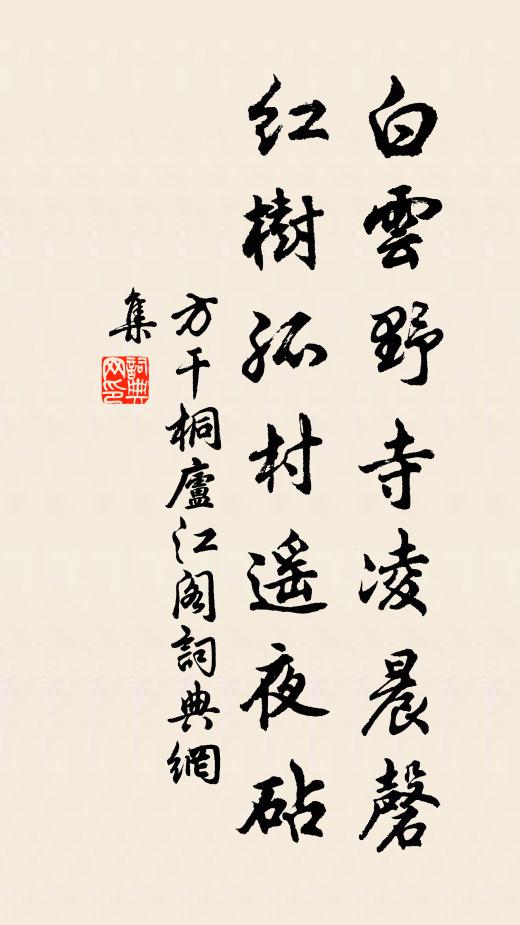 白雲野寺凌晨磬
紅樹孤村遥夜砧
方干桐廬江阁詞典網
集
詞典
网印